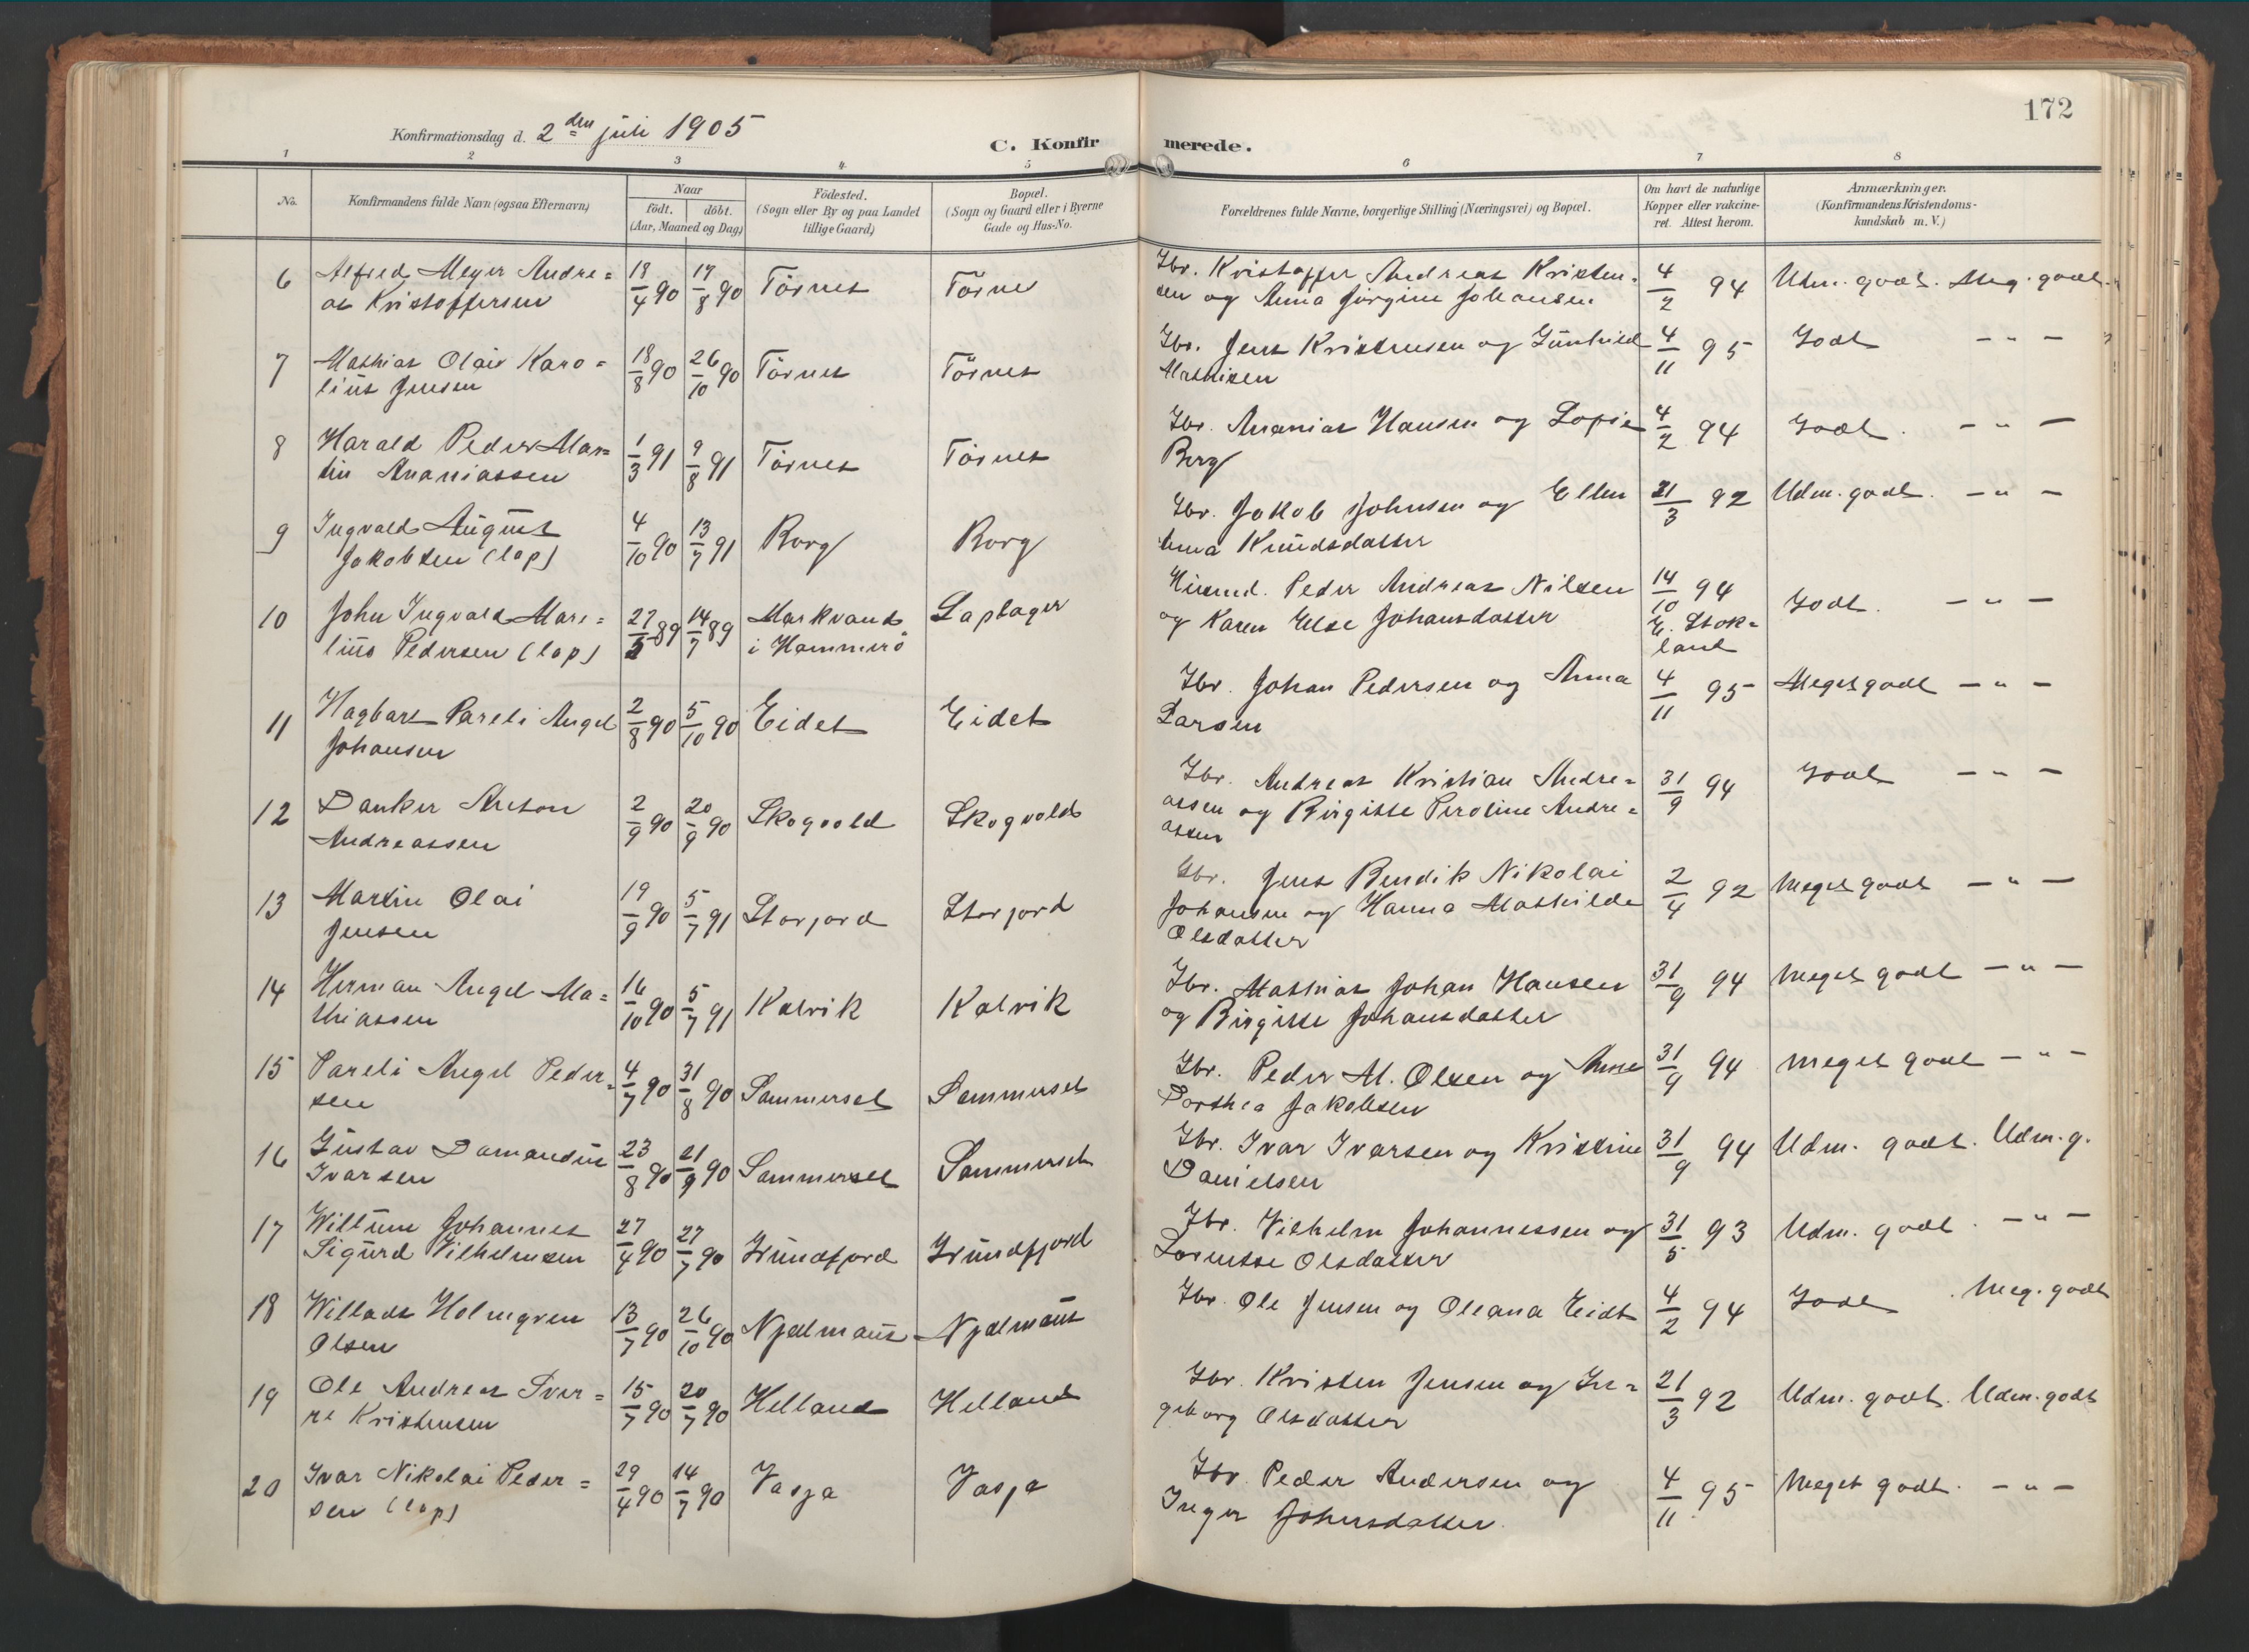 172
Konfirmationsdag d. 2den juli 1905
C. Konfirmerede.
1 2 3 4 5 6 7 8
No. Konfirmandens fulde Navn (ogsaa Efternavn) Naar født. døbt. (Aar, Maaned og Dag) Fødested. (Sogn eller By og paa Landet tillige Gaard) Bopæl. (Sogn og Gaard eller i Byerne Gade og Hus-No. Forældrenes fulde Navne, borgerlige Stilling (Næringsvei) og Bopæl. Om havt de naturlige Kopper eller vaccineret. Attest herom. Anmærkninger. (Konfirmandens Kristendomskundskab m. V.)
6 Alfred Meyer Andre= 18/4 90 17/8 90 Törnes Törnes Gbr. Kristoffer Andreas Kristen- 4/2 94 Udm. godt. Meg. godt.
as Kristoffersen sen og Anna Jørgine Johansen
7 Mathias Olaiv Karo= 18/8 90 26/10 90 Törnes Törnes Gbr. Jens Kristensen og Gunhild 4/11 95 Godt - " -
lius Jensen Mathisen
8 Harald Peder Mar= 1/3 91 9/8 91 Törnes Törnes Gbr. Ananias Hansen og Sofie 4/2 94 Godt. - " -
tin Ananiassen Berg
9 Ingvald August 4/10 90 13/7 91 Borg Borg Gbr. Jakob Johnsen og Ellen 21/3 92 Udm. godt. - " -
Jakobsen (lap) Anna Knudsdatter
10 John Ingvald Mare= 27/5 89 14/7 89 Markvand Laplager Husmd. Peder Andreas Nilsen 14/10 94 Godt. - " -
lius Pedersen (lap) i Hammerö og Karen Else Johansdatter E. Stok=
land
11 Hagbart Pareli Angel 2/8 90 5/10 90 Eidet Eidet Gbr. Johan Pedersen og Anna 4/11 95 Meget godt - " -
Johansen Larsen
12 Danker Anton 2/9 90 20/9 90 Skogvold Skogvold Gbr. Andreas Kristian Andre= 31/9 94 Godt - " -
Andreassen assen og Birgitte Peroline Andre=
assen
13 Martin Olai 19/9 90 5/7 91 Storjord Storjord Gbr. Jens Bendik Nikolai 2/4 92 Meget godt - " -
Jensen Johansen og Hanna Mathilde
Olsdatter
14 Herman Angel Ma= 16/10 90 5/7 91 Kalvik Kalvik Gbr. Mathias Johan Hansen 31/9 94 Meget godt - " -
thiassen og Birgitte Johansdatter
15 Pareli Angel Peder= 4/7 90 31/8 90 Sommerset Sommerset Gbr. Peder M. Olsen og Anne 31/9 94 Meget godt - " -
sen Dorthea Jakobsen
16 Gustav Damandus 23/8 90 21/9 90 Sommerset Sommerset Gbr. Ivar Ivarsen og Kristine 31/9 94 Udm. godt. Udm. g.
Ivarsen Danielsen
17 Willum Johannes 27/4 90 27/7 90 Grundfjord Grundfjord Gbr. Vilhelm Johannessen og 31/5 93 Udm. godt. - " -
Sigurd Vilhelmsen Lorntse Olsdatter
18 Willads Holmgren 13/7 90 26/10 90 Njalmaus Njalmaus Gbr. Ole Jensen og Oleana Eidt 4/2 94 Godt. Meg. godt
Olsen
19 Ole Andreas Sver= 15/7 90 20/7 90 Helland Helland Gbr. Kristen Jensen og In= 21/3 92 Udm. godt. Udm. godt
re Kristensen geborg Olsdatter
20 Ivar Nikolai Peder= 29/4 90 14/7 90 Vasja Vasja Gbr. Peder Andersen og 4/11 95 Meget godt. - " -
sen (lap) Inger Johnsdatter.